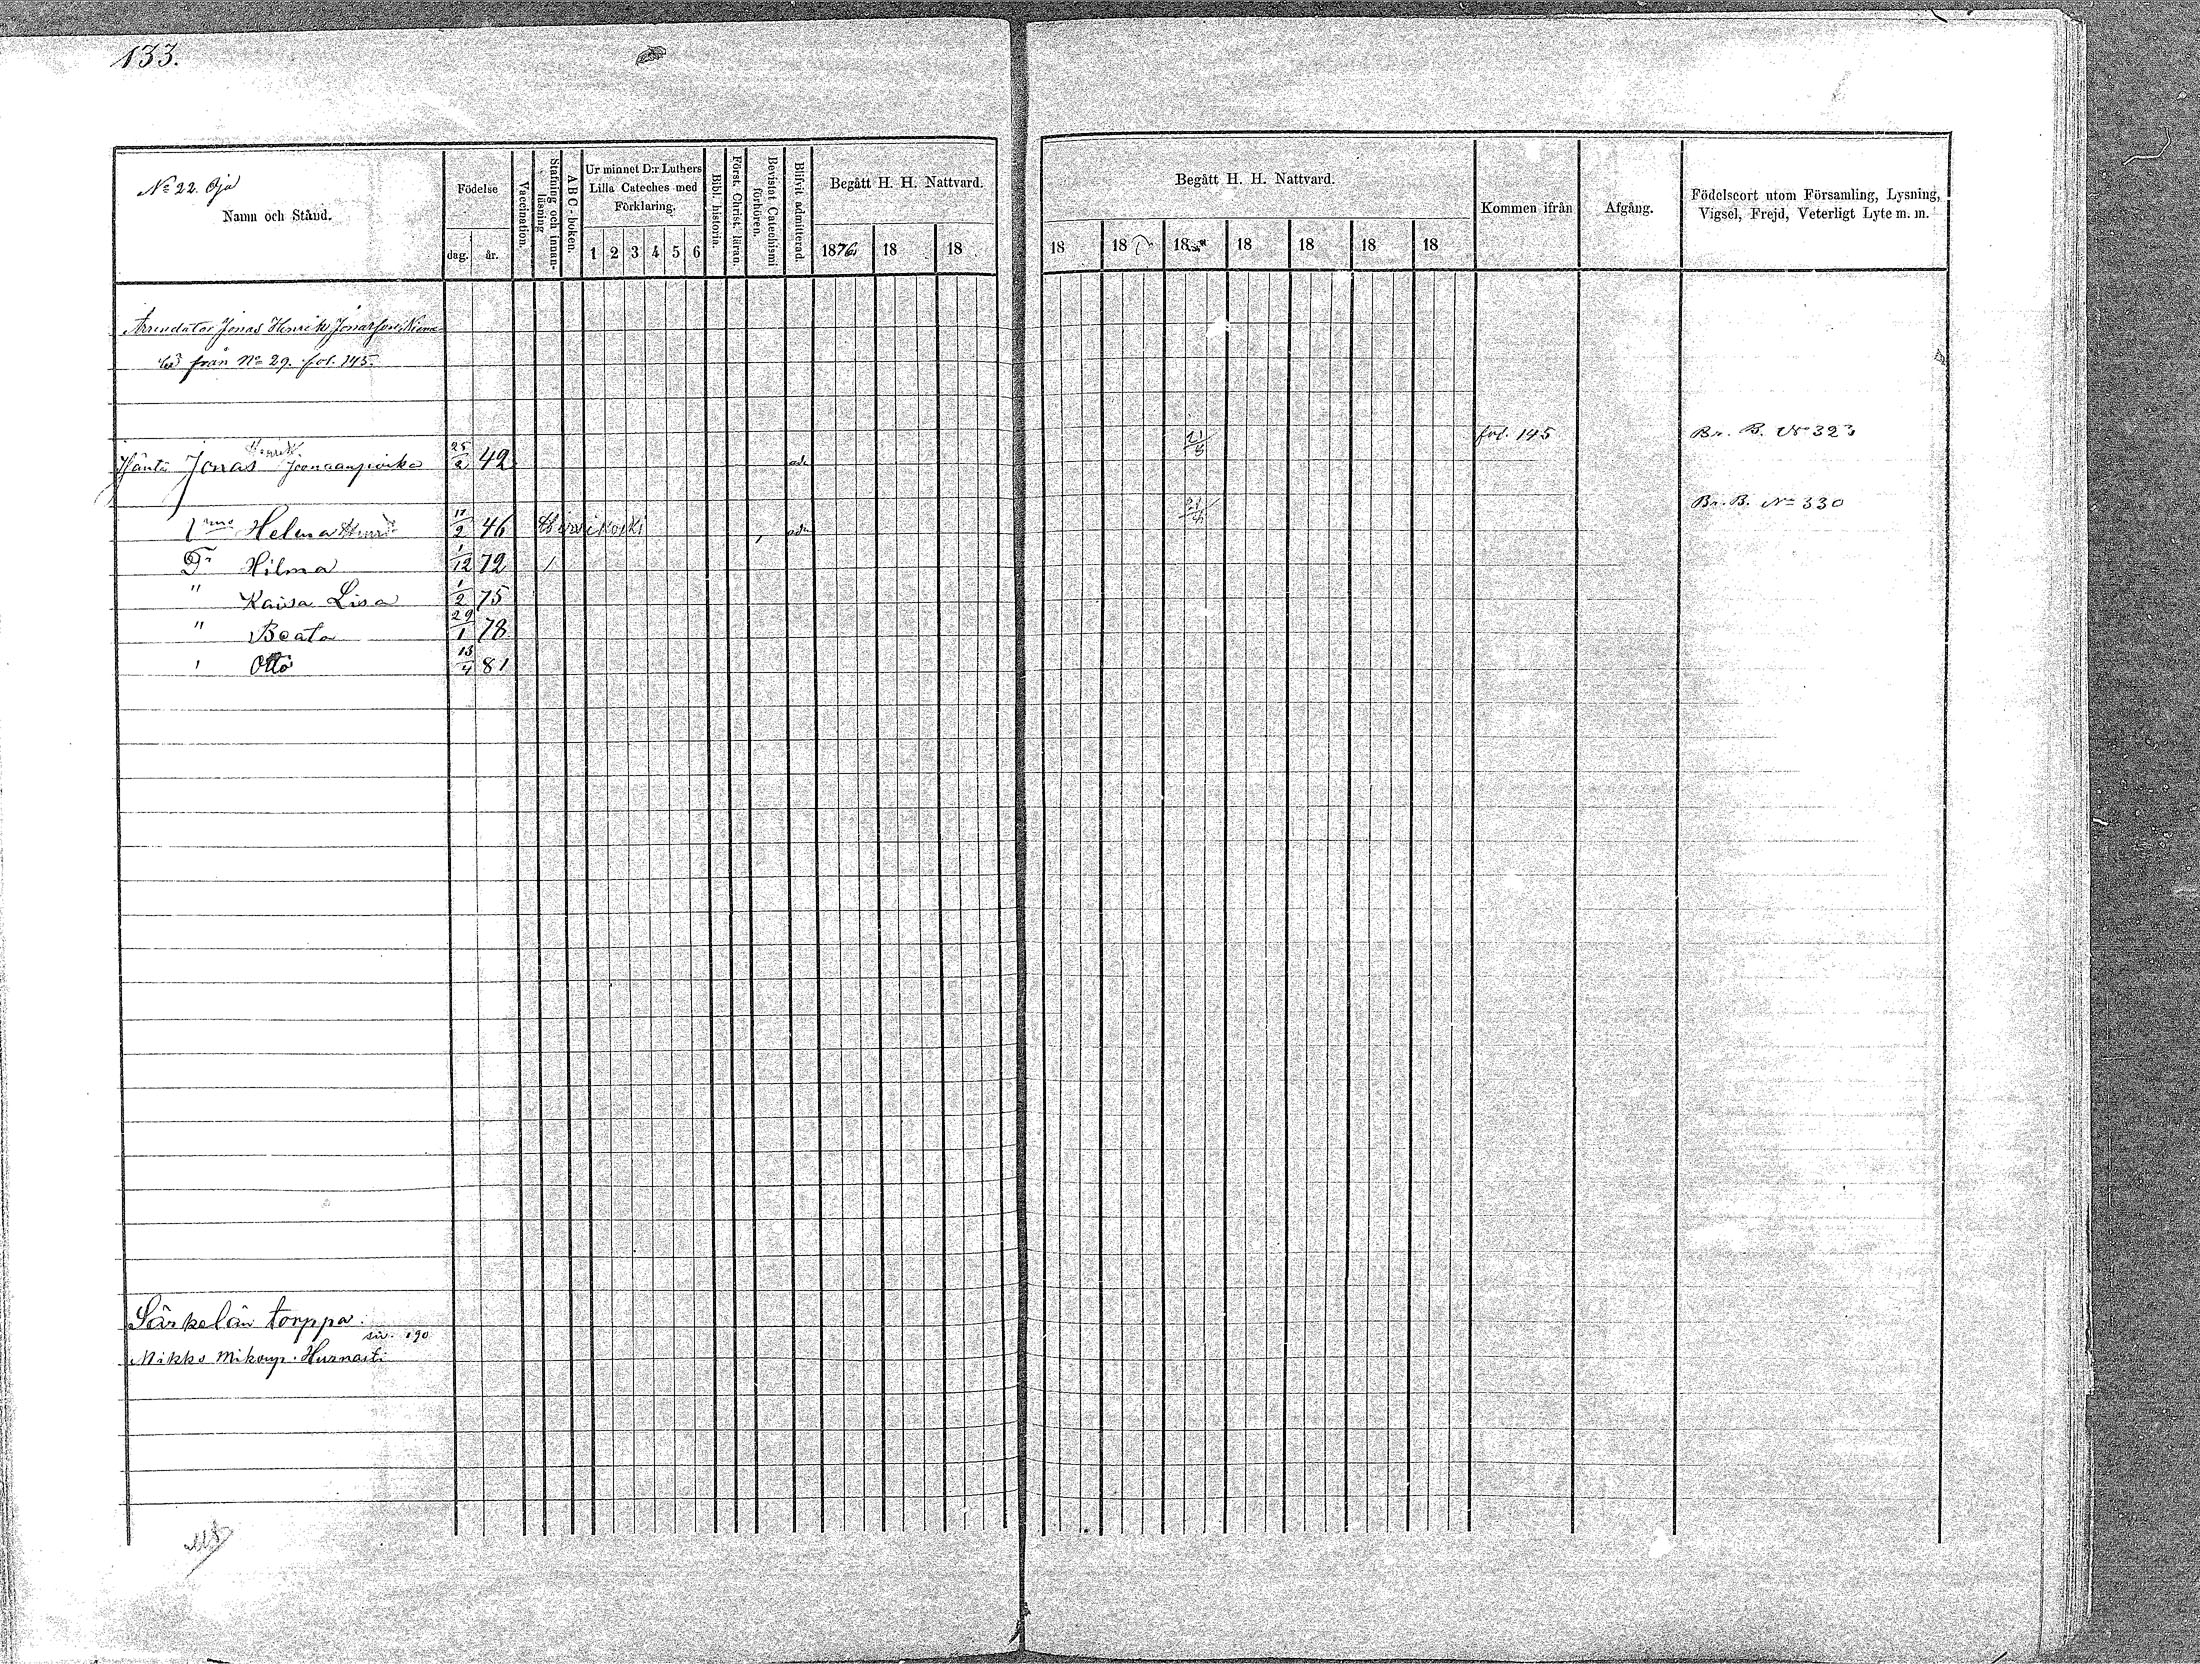 133.
No 22. Oja
Namn och Stånd.
Födelse
dag. år.
Vaccination.
Stafning och innan-
läsning
A B C - boken.
Ur minnet D:r Luthers
Lilla Cateches med
Förklaring.
1 2 3 4 5 6
Bibl. historia.
Först. Christ. läran.
Bevistat Catechismi
förhören.
Blifvit admitterad.
Begått H. H. Nattvard.
1876 18 18
Begått H. H. Nattvard.
18 18 18 18 18 18 18
Kommen ifrån
Afgång.
Födelseort utom Församling, Lysning,
Vigsel, Frejd, Veterligt Lyte m. m.
Arrendator Jonas Henrik Jonasson
från No 29. fol. 145.
Jonas Henrik Joonaanpoika 25/2 42 fol. 145 Br. B. No 323
Helena 2 46 Br. B. No 330
Dr Hilma 1/12 72
" Kaisa Lisa 1/2 75
" Beata 29/1 78
" Otto 13/4 81
Särkelän torppa.
siv. 190
Mikko Mikonp. Hurnasti